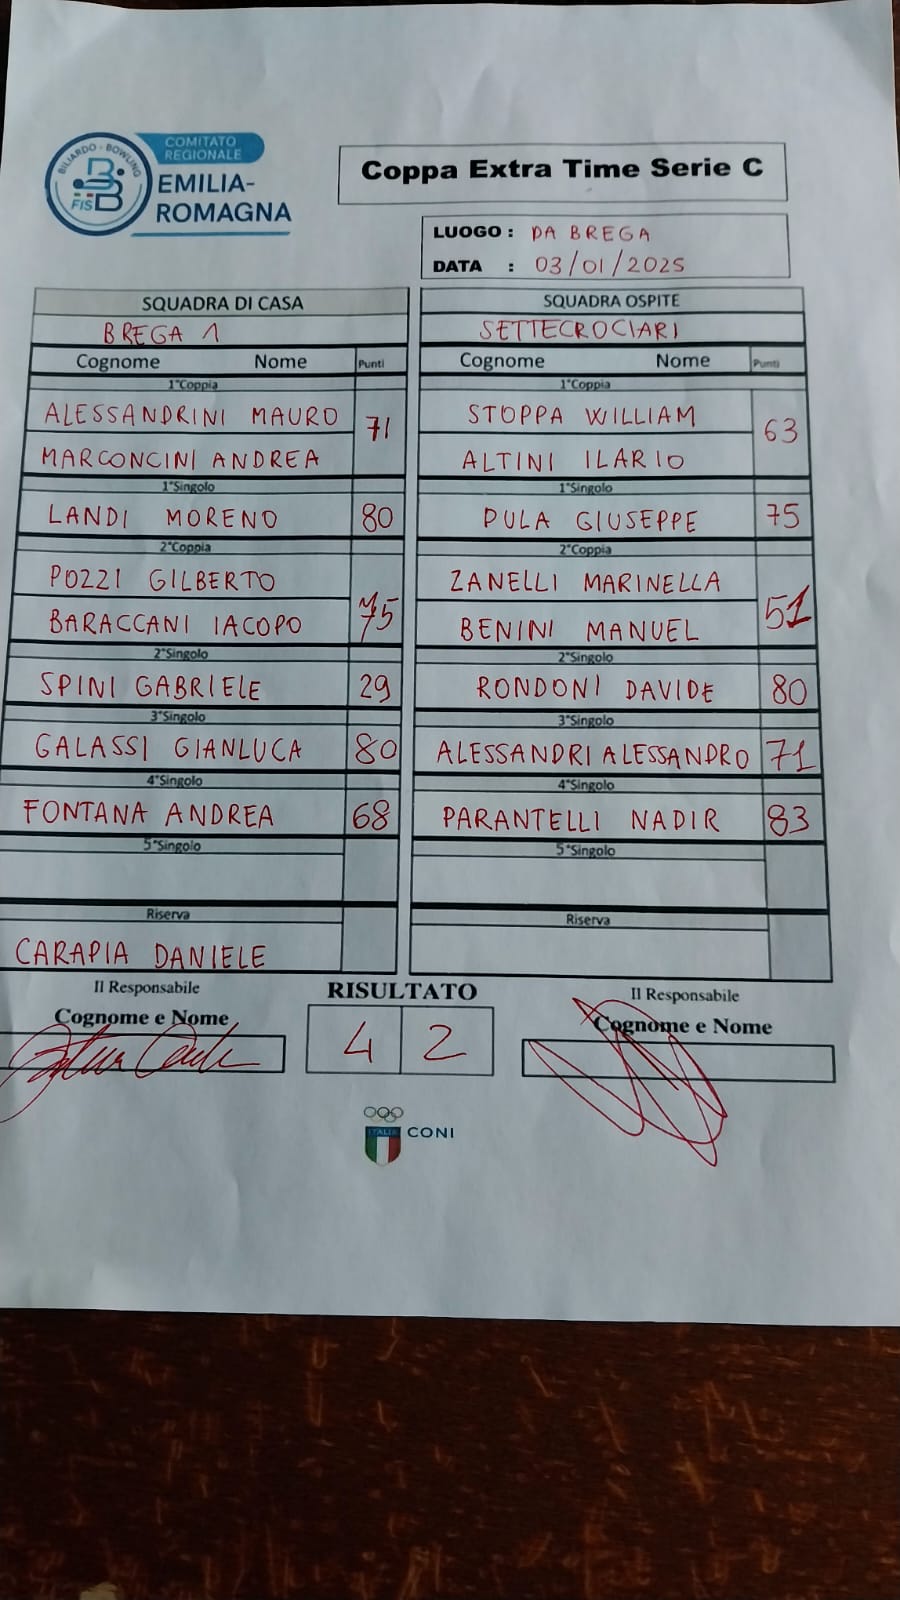 BILIARDO - BOWLING
FISBB
COMITATO
REGIONALE
EMILIA-
ROMAGNA
Coppa Extra Time Serie C
LUOGO : DA BREGA
DATA : 03/01/2025
SQUADRA DI CASA
BREGA 1
Cognome Nome Punti
1°Coppia
ALESSANDRINI MAURO 71
MARCONCINI ANDREA
1°Singolo
LANDI MORENO 80
2°Coppia
POZZI GILBERTO
BARACCANI IACOPO 75
2°Singolo
SPINI GABRIELE 29
3°Singolo
GALASSI GIANLUCA 80
4°Singolo
FONTANA ANDREA 68
5°Singolo
Riserva
CARAPIA DANIELE
Il Responsabile
Cognome e Nome
SQUADRA OSPITE
SETTECROCIARI
Cognome Nome Punti
1°Coppia
STOPPA WILLIAM 63
ALTINI ILARIO
1°Singolo
PULA GIUSEPPE 75
2°Coppia
ZANELLI MARINELLA
BENINI MANUEL 51
2°Singolo
RONDONI DAVIDE 80
3°Singolo
ALESSANDRI ALESSANDRO 71
4°Singolo
PARANTELLI NADIR 83
5°Singolo
Riserva
Il Responsabile
Cognome e Nome
RISULTATO
4 2
ITALIA
CONI